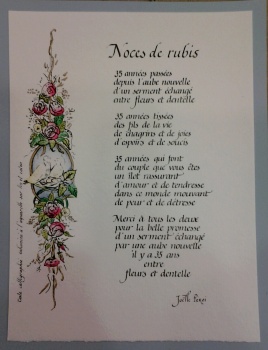 Noces de rubis
35 années passées
depuis l'aube nouvelle
d'un serment échangé
entre fleurs et dentelle
35 années tissées
des fils de la vie
de chagrins et de joies
d'espoirs et de soucis
35 années qui font
du couple que vous êtes
un îlot rassurant
d'amour et de tendresse
dans ce monde mouvant
de peur et de détresse
Merci à tous les deux
pour la belle promesse
d'un serment échangé
par une aube nouvelle
il y a 35 ans
entre
fleurs et dentelle